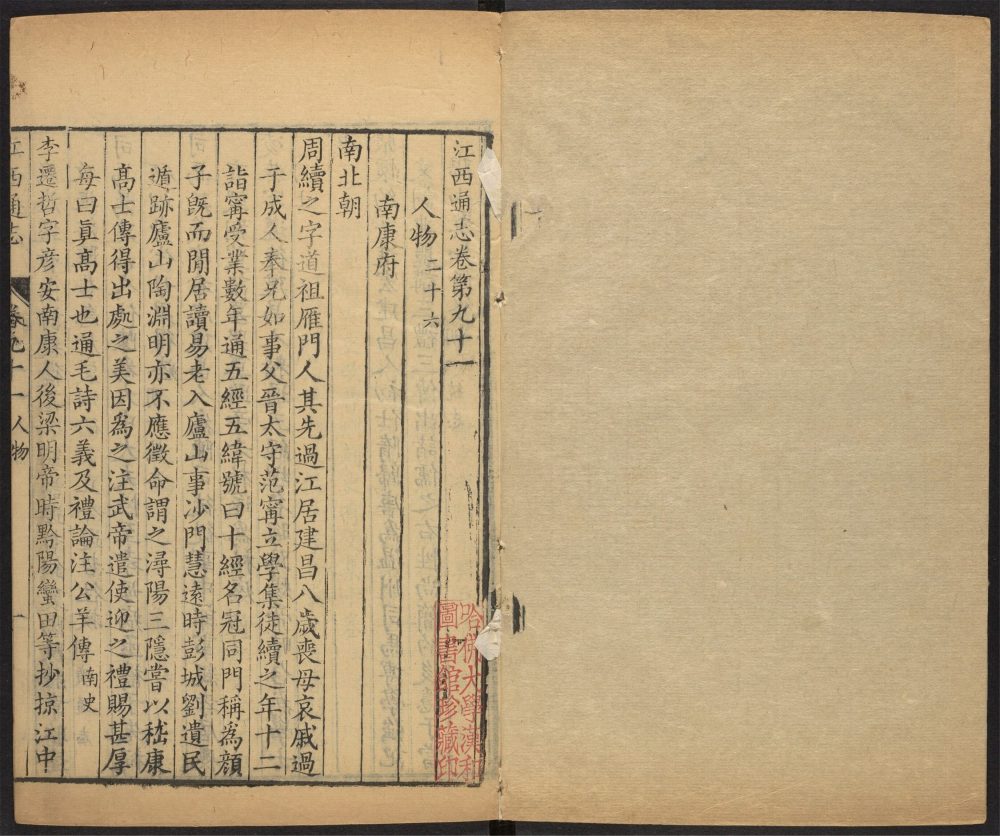 江西通志卷第九十一
人物 二十六
南康府
南北朝
周續之字道祖雁門人其先過江居建昌八歲喪母哀戚過
于成人奉兄如事父晉太守范甯立學集徒續之年十二
詣甯受業數年通五經五緯號曰十經名冠同門稱為顏
子旣而閒居讀易老入廬山事沙門慧遠時彭城劉遺民
遁跡廬山陶淵明亦不應徵命謂之潯陽三隱嘗以嵇康
髙士傳得出處之美因爲之注武帝遣使迎之禮賜甚厚
每曰眞髙士也通毛詩六義及禮論注公羊傳 南史
李遷哲字彥安南康人後梁明帝時黔陽蠻田等抄掠江中
江西通志 卷九十一 人物 一
哈佛大學漢和
圖書館珍藏印